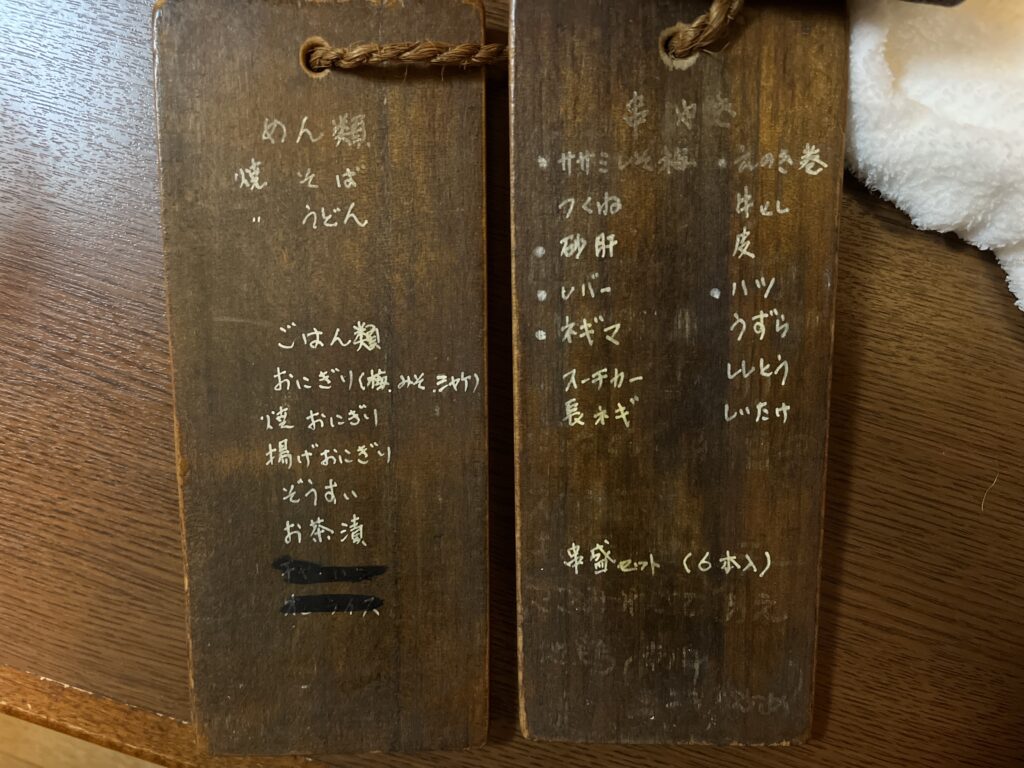 めん類
焼そば
〃 うどん
ごはん類
おにぎり(梅、みそ、シャケ)
焼おにぎり
揚げおにぎり
ぞうすい
お茶漬
串やき
・ササミしそ梅 ・えのき巻
つくね 牛とし
・砂肝 皮
・レバー ・ハツ
・ネギマ うずら
スーチカー ししとう
長ネギ しいたけ
串盛セット(6本入)